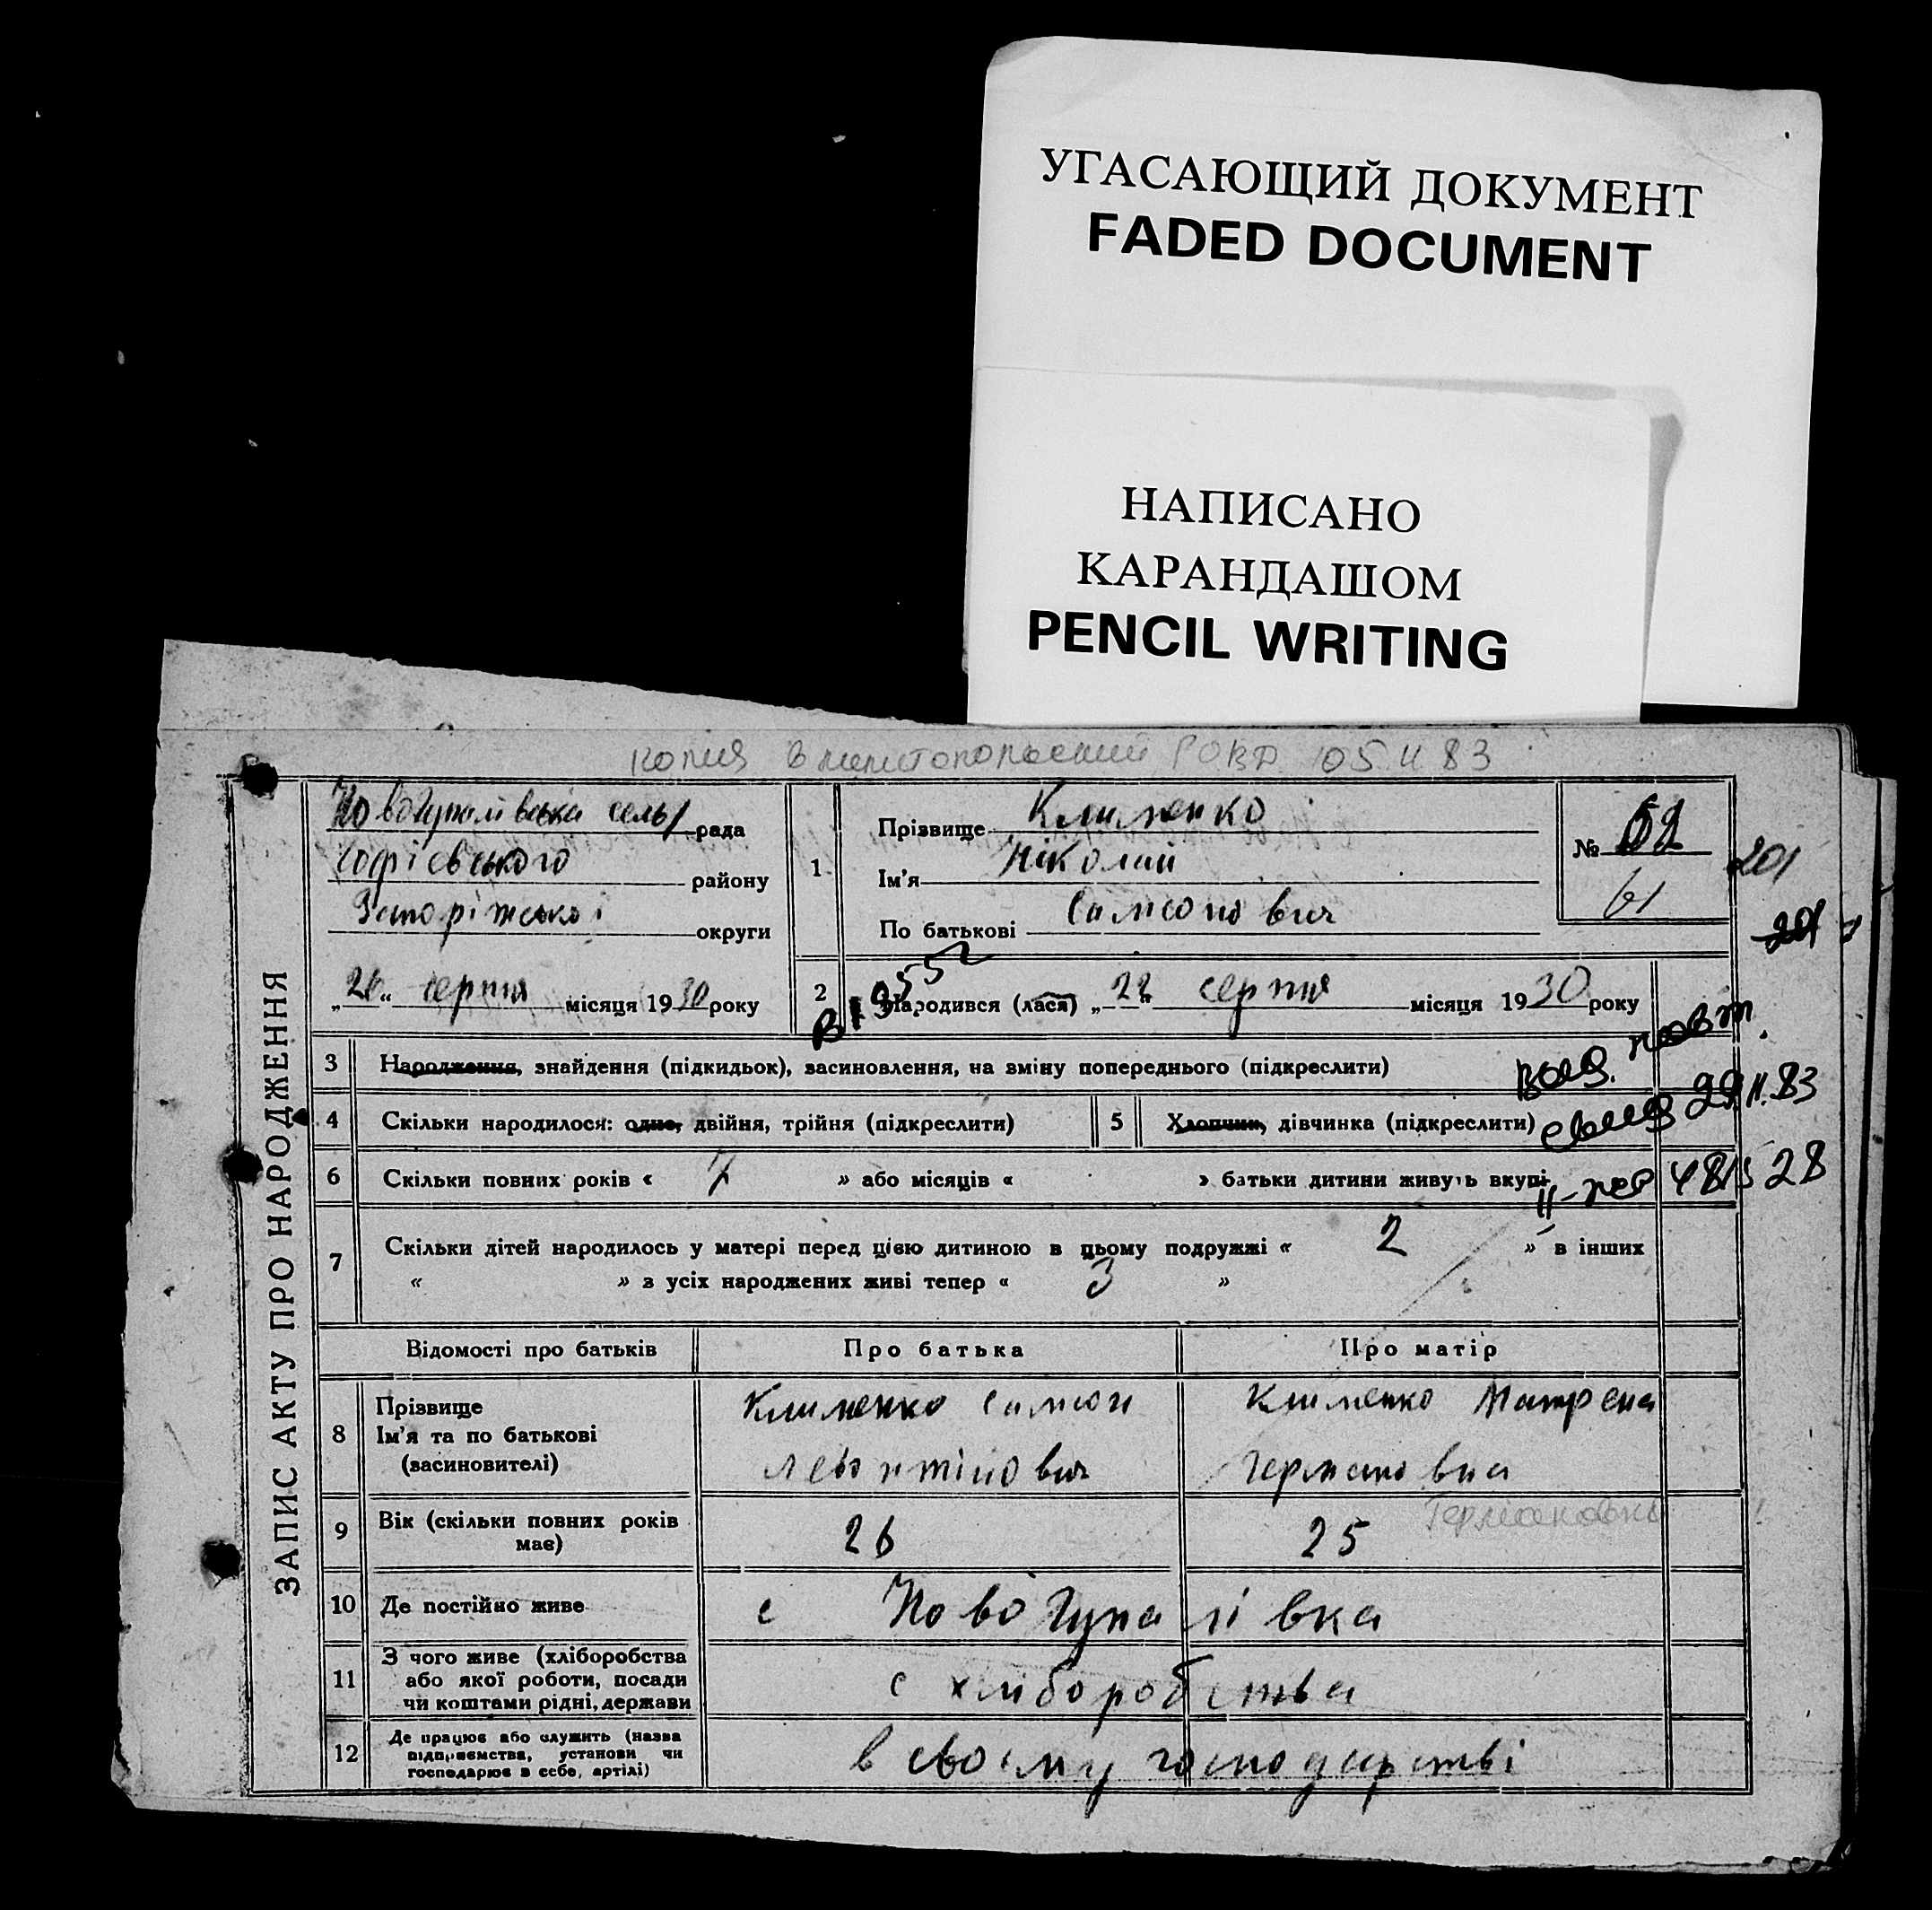 УГАСАЮЩИЙ ДОКУМЕНТ
FADED DOCUMENT
НАПИСАНО
КАРАНДАШОМ
PENCIL WRITING
копия в мелитопольский РОВД 05.II 83
ЗАПИС АКТУ ПРО НАРОДЖЕННЯ
Новогупалівська сель рада
Софієвського району
Запоріжської округи
„26“ серпня місяця 1930 року
1
Прізвище Клименко
Ім'я Ніколай
По батькові Самсонович
№ 52
61
201
201
2 Народився (лася) „22“ серпня місяця 1930 року
3 Народження, знайдення (підкидьок), засиновлення, на зміну попереднього (підкреслити)
4 Скільки народилося: одно, двійня, трійня (підкреслити)
5 Хлопчик, дівчинка (підкреслити)
6 Скільки повних років « 7 » або місяців « » батьки дитини живуть вкупі
7 Скільки дітей народилось у матері перед цією дитиною в цьому подружжі « 2 » в інших
« » з усіх народжених живі тепер « 3 »
Відомості про батьків Про батька Про матір
8 Прізвище
Ім'я та по батькові
(засиновителі)
Клименко Самсон
Клименко Матрена
Германовна
9 Вік (скільки повних років
має)
26 25
Германовна
10 Де постійно живе с Новогупалівка
11 З чого живе (хліборобства
або якої роботи, посади
чи коштами рідні, держави
с хліборобства
12 Де працює або служить (назва
підприємства, установи чи
господарює в себе, артілі)
в своєму господарстві